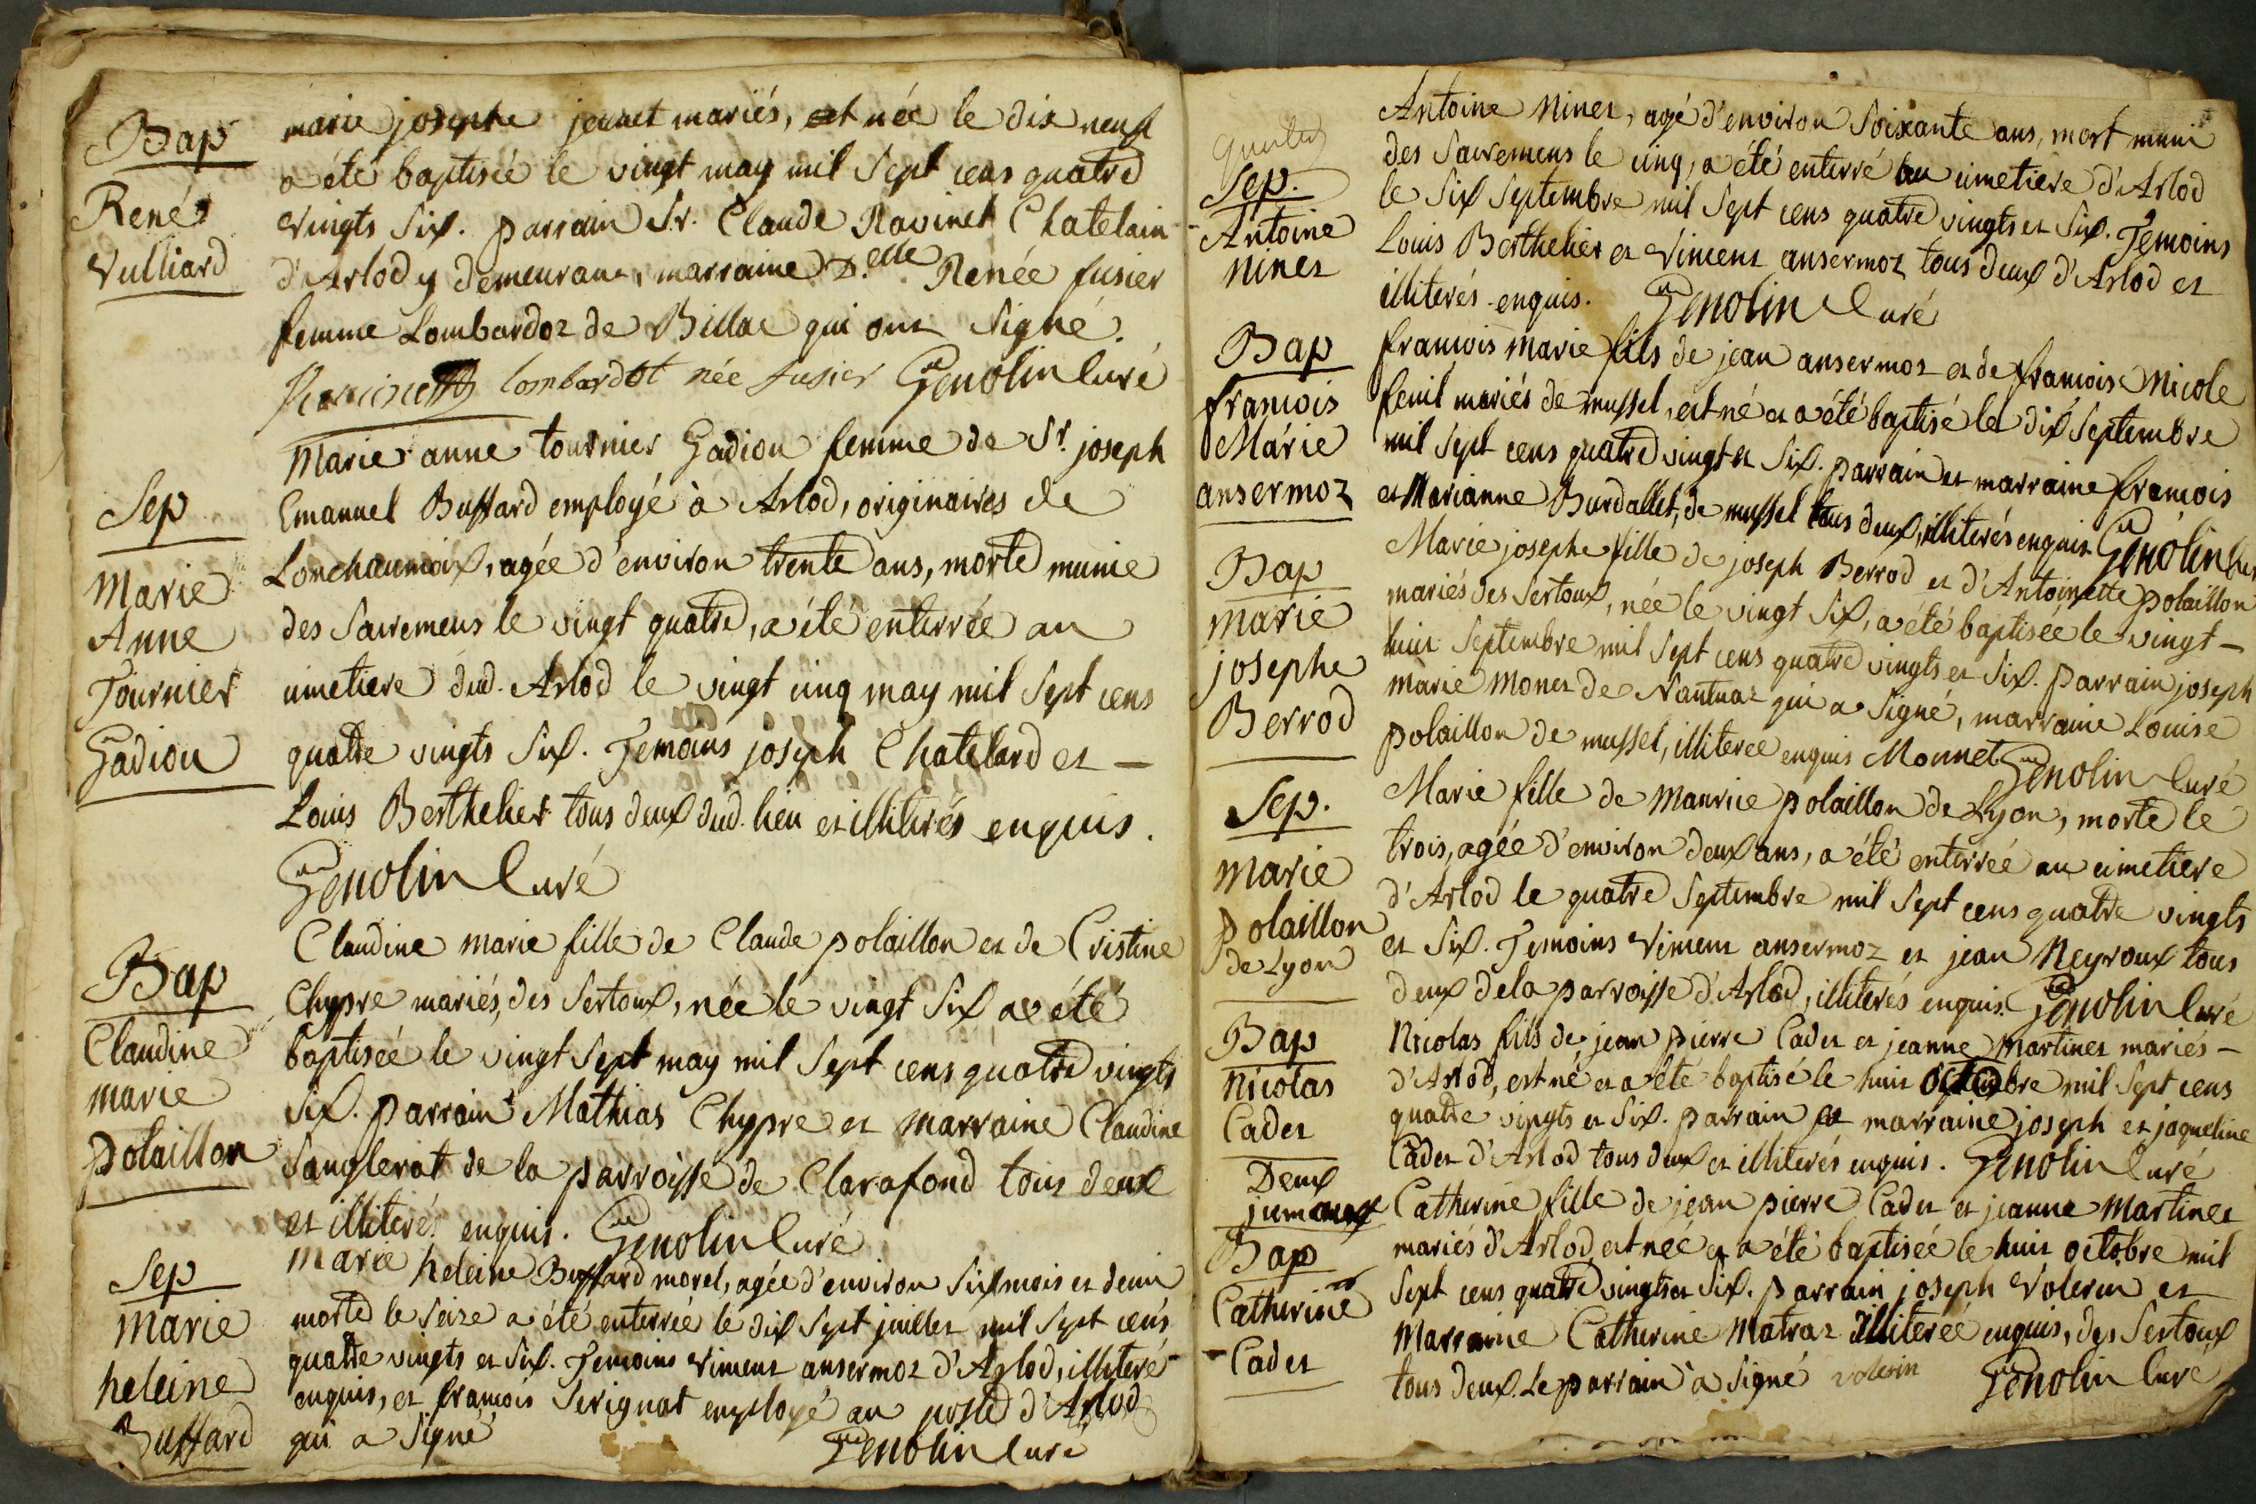 Bap
Renée
Vulliard
marie josephe jeunet mariés, est née le dix neuf
a été baptisée le vingt may mil Sept cens quatre
vingts Six. parrain Sr. Claude Ravinet Chatelain
d'Arlod y demeurant, marraine D.elle Renée fusier
femme Lombardoz de Billac qui ont Signé.
Ravinet lombardot née fusier Genolin Curé
Sep
Marie
Anne
Tournier
Gadiou
Marie anne tournier Gadiou femme de Sr. joseph
Emanuel Buffard employé à Arlod, originaires de
Lonchaumoix, agée d'environ trente ans, morte munie
des Sacremens le vingt quatre, a été enterrée au
cimetiere dud. Arlod le vingt cinq may mil Sept cens
quatre vingts Six. Temoins joseph Chatelard et –
Louis Berthelier tous deux dud. lieu et illiterés enquis.
Genolin Curé
Bap
Claudine
marie
polaillon
Claudine marie fille de Claude polaillon et de Cristine
Chypre mariés, des Sertoux, née le vingt Six a été
baptisée le vingt Sept may mil Sept cens quatre vingts
Six. parrain Mathias Chypre et marraine Claudine
Sanglerat de la parroisse de Clarafond tous deux
et illiterés enquis. Genolin Curé
Sep
marie
heleine
Buffard
marie heleine Buffard morel, agée d'environ Six mois et demi
morte le Seize a été enterrée le dix Sept juillet mil Sept cens
quatre vingts et Six. Temoins Vincent ansermoz d'Arlod, illiteré
enquis, et francois Serignat employé au poste d'Arlod
qui a Signé
Genolin Curé
Sep.
Antoine
Ninet
Antoine Ninet, agé d'environ Soixante ans, mort muni
des Sacremens le cinq, a été enterré au cimetiere d'Arlod
le Six Septembre mil Sept cens quatre vingts et Six. Temoins
Louis Berthelier et Vincent ansermoz tous deux d'Arlod et
illiterés enquis. Genolin Curé
Bap
francois
Marie
ansermoz
francois marie fils de jean ansermoz et de francoise Nicole
feuil mariés de mussel, est né et a été baptisé le dix Septembre
mil Sept cens quatre vingt et Six. parrain et marraine francois
et Marianne Burdallet, de mussel tous deux, illiterés enquis Genolin Curé
Bap
marie
josephe
Berrod
Marie josephe fille de joseph Berrod et d'Antoinette polaillon
mariés des Sertoux, née le vingt Six, a été baptisée le vingt –
huit Septembre mil Sept cens quatre vingts et Six. parrain joseph
marie Monet de Nantuaz qui a Signé, marraine Louise
polaillon de mussel, illiterée enquis Monnet Genolin Curé
Sep.
Marie
polaillon
de Lyon
Marie fille de Maurice polaillon de Lyon, morte le
trois, agée d'environ deux ans, a été enterrée au cimetiere
d'Arlod le quatre Septembre mil Sept cens quatre vingts
et Six. Temoins Vincent ansermoz et jean Neyroux tous
deux de la parroisse d'Arlod, illiterés enquis. Genolin Curé
Bap
Nicolas
Cadet
Nicolas fils de jean pierre Cadet et jeanne Martinet mariés –
d'Arlod, est né et a été baptisé le huit Octobre mil Sept cens
quatre vingts et Six. parrain et marraine joseph et jaqueline
Cadet d'Arlod tous deux et illiterés enquis. Genolin Curé
Deux
jumeaux
Bap
Catherine
Cadet
Catherine fille de jean pierre Cadet et jeanne Martinet
mariés d'Arlod, est née et a été baptisée le huit octobre mil
Sept cens quatre vingts et Six. parrain joseph Volerin et
Marraine Catherine Matraz illiterée enquis, des Sertoux
tous deux. Le parrain a Signé volerin Genolin Curé